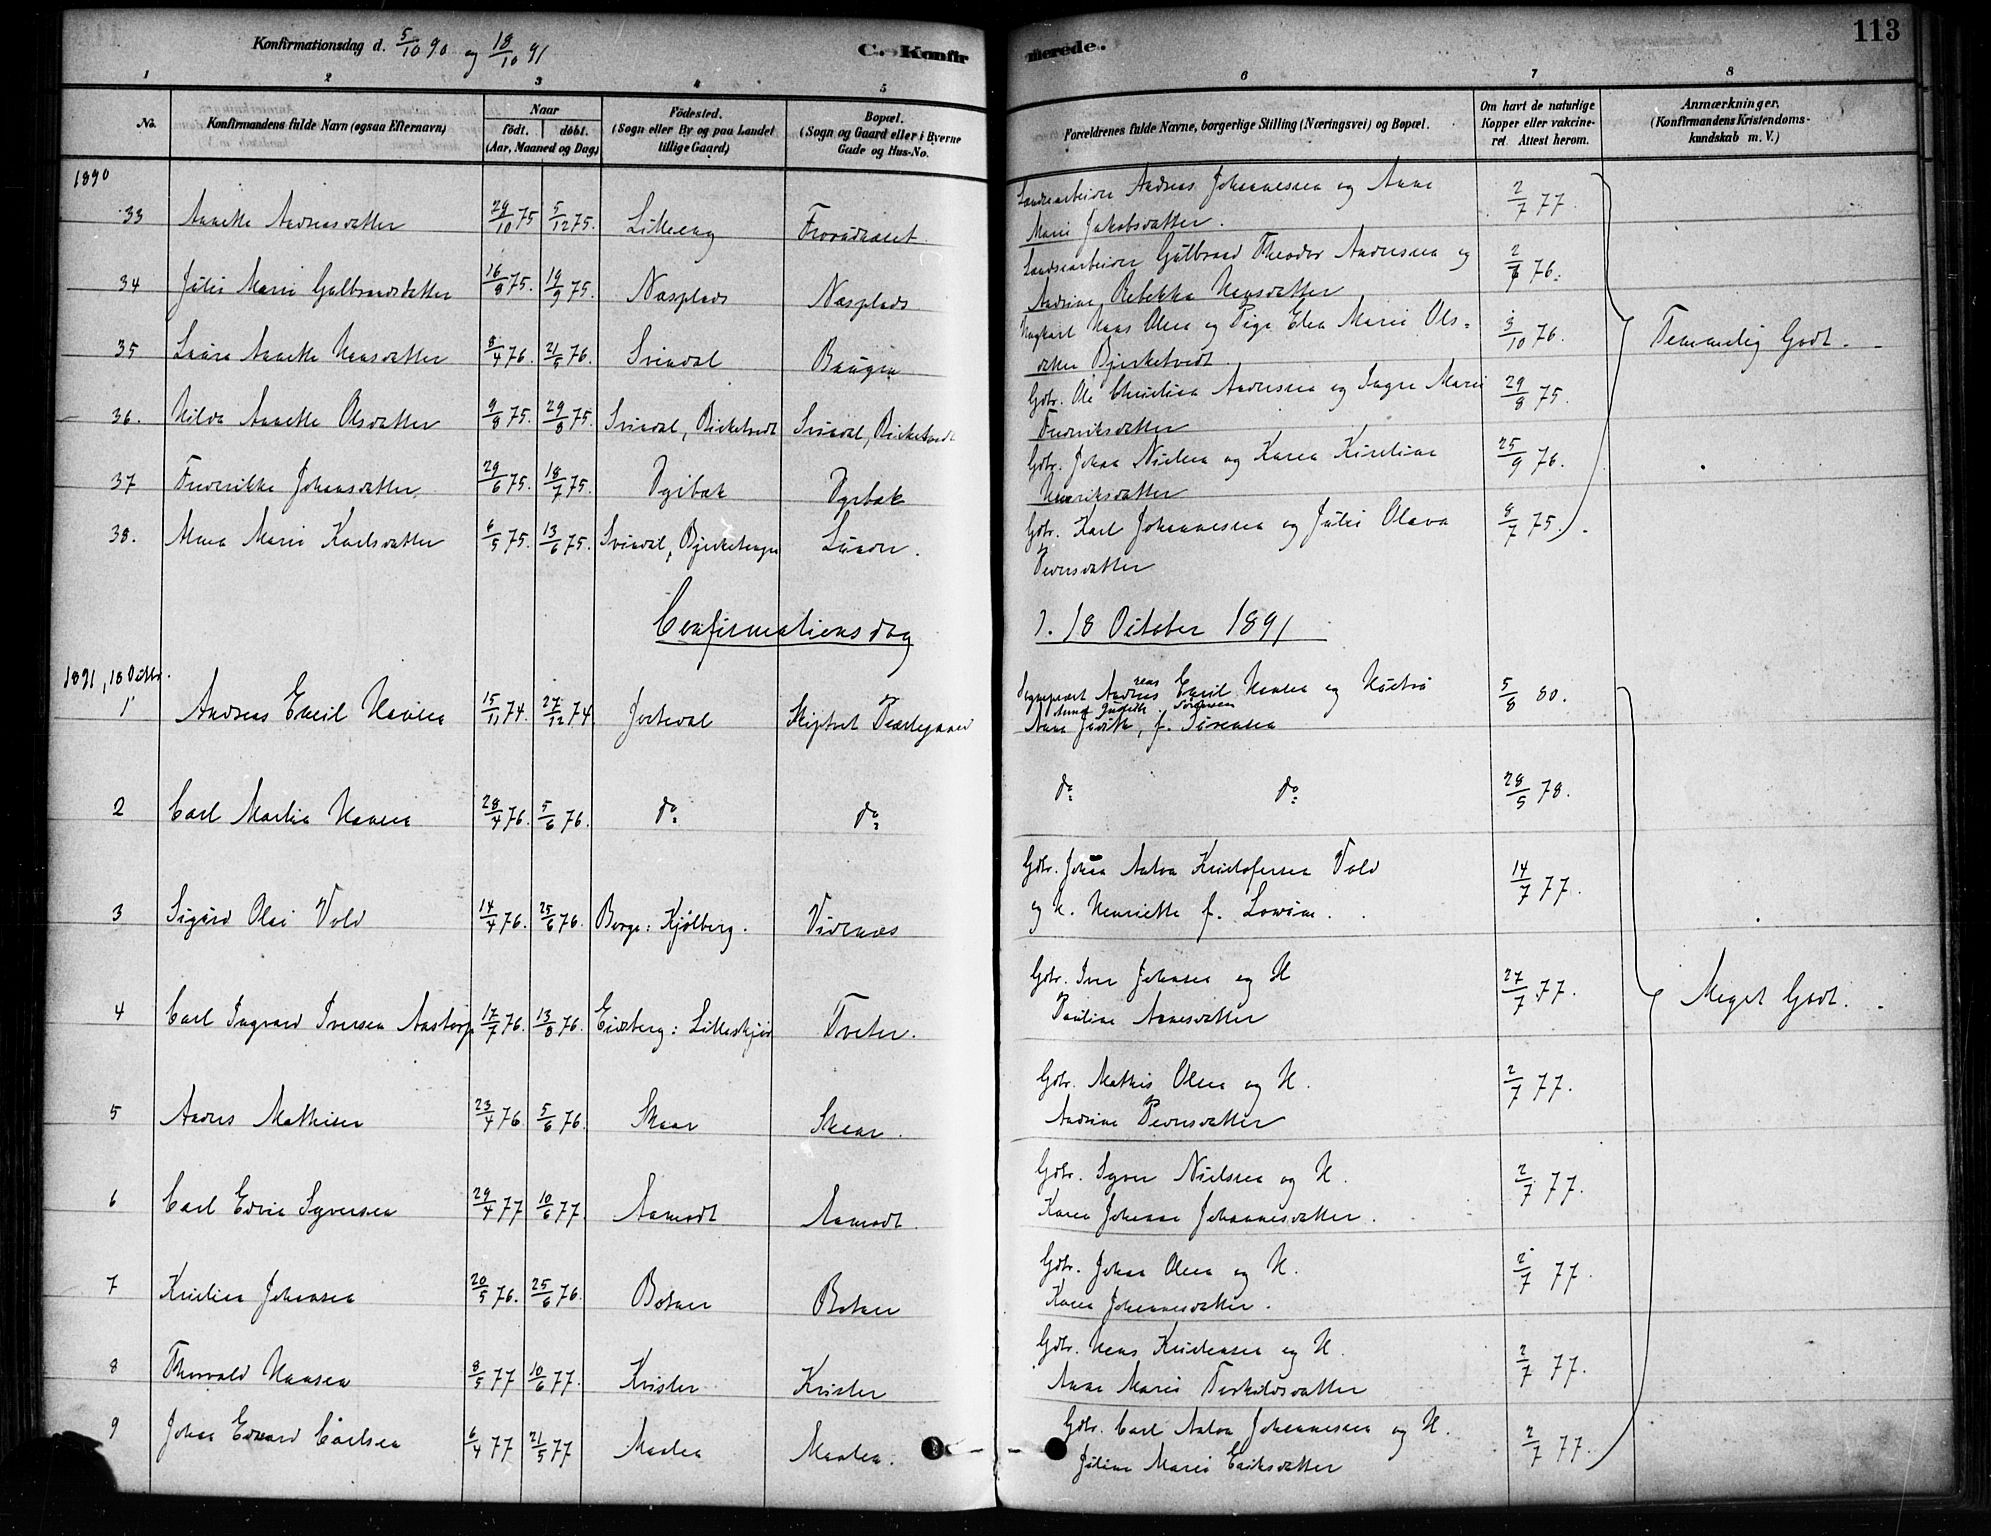 Konfirmationsdag d. 5/10 90 og 18/10 91
C. Konfirmerede.
113
1 2 3 4 5 6 7 8
No.
Konfirmandens fulde Navn (ogsaa Efternavn)
Naar
født. døbt.
(Aar, Maaned og Dag)
Fødested.
(Sogn eller By og paa Landet
tillige Gaard)
Bopæl.
(Sogn og Gaard eller i Byerne
Gade og Hus-No.
Forældrenes fulde Navne, borgerlige Stilling (Næringsvei) og Bopæl.
Om havt de naturlige
Kopper eller vakcine-
ret. Attest herom.
Anmærkninger.
(Konfirmandens Kristendoms-
kundskab m. V.)
1890
33 Annette Andreasdatter 29/10 75 5/12 75. Lilleeng
Andreas Johannesen og Anne
Marie Jakobsdatter. 2/7 77.
34 Julie Marie Gulbrandsdatter 16/8 75. 19/9 75. Næsplads Næsplads
Gulbrand Theodor Andersen og
Andrine Rebekka Hansdatter 76.
35 Laura Annette Hansdatter 8/4 76. 21/5 76. Svindal
Ungkarl Hans Olsen og Pige Elen Marie Ols-
datter Bjerketvedt 3/10 76.
Temmelig Godt.
36. Hilda Annette Olsdatter 9/8 75. 29/8 75. Svindal, Birketvedt Svindal, Birketvedt
Gdbr. Ole Christian Andersen og Ingre Marie
Fredriksdatter 29/8 75.
37 Frederikke Johansdatter 29/6 75. 18/7 75. Dyrbæk Dyrbæk
Gdbr. Johan Nielsen og Karen Kirstine
Henriksdatter 25/9 76.
38. Maren Marie Karlsdatter 6/5 75. 13/6 75. Svindal,
Gdbr. Karl Johannesen og Julie Olava
Pedersdatter 8/7 75.
Confirmationsdag
d. 18 October 1891
1891, 18 Octbr.
1 Andreas Emil Hansen 15/11 74. 27/12 74
Andreas Emil Hansen og Hustru
Anna Judith, f. Sørensen 5/8 80.
2 Carl Martin Hansen 28/4 76. 5/6 76. do do
do do 28/5 78.
3 Sigurd Olai Vold 14/4 76. 25/6 76. Borge: Kjølberg. Videnæs
Gdbr. Johan Anton Kristofersen Vold
og H. Henriette f. 14/7 77.
4 Carl Ingvard Iversen Aastorp 17/7 76. 13/8 76. Eidsberg: Tveter.
Gdbr. Iver Johnsen og H
Pauline Arnesdatter 27/7 77.
Meget Godt.
5 Anders Mathisen 23/4 76 5/6 76. Skaar Skaar.
Gdbr. Mathis Olsen og H.
Andrine Pedersdatter 2/7 77.
6 Carl Edvin Syversen 29/4 77 10/6 77. Aamodt Aamodt.
Gdbr. Syver Nielsen og H.
Karen Johanne Johannesdatter. 2/7 77.
7 Kristian Johansen 20/5 76. 25/6 76. Botner Botner
Gdbr. Johan Olsen og H.
Karen Johannesdatter. 2/7 77.
8 Thorvald Hansen 8/5 77 10/6 77. Krisler Krisler
Gdbr. Hans Kristensen og H.
Anne Marie Terkildsdatter 2/7 77.
9 Johan Edvard Carlsen 6/4 77 21/5 77 Maalen Maalen.
Gdbr. Carl Anton Johannesen og H.
Juline Marie Eriksdatter 2/7 77.